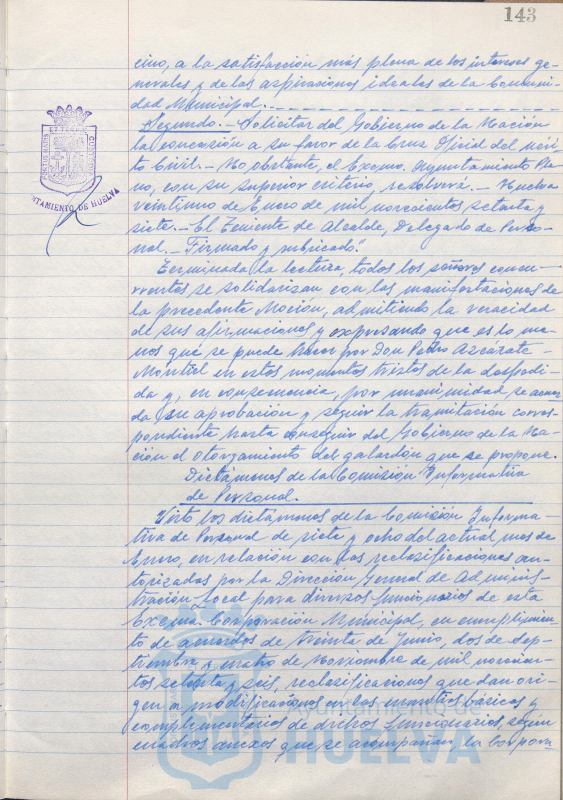 143
cino, a la satisfacción más plena de los intereses ge-
nerales y de las aspiraciones ideales de la Comuni-
dad Municipal.
Segundo.- Solicitar del Gobierno de la Nación
la concesión a su favor de la Cruz Oficial del Méri-
to Civil.- No obstante, el Excmo. Ayuntamiento Ple-
no, con su superior criterio, resolverá.- Huelva
veintiuno de Enero de mil novecientos setenta y
siete.- El Teniente de Alcalde, Delegado de Perso-
nal.- Firmado y rubricado".
Terminada la lectura, todos los señores concu-
rrentes se solidarizan con las manifestaciones de
la precedente Moción, admitiendo la veracidad
de sus afirmaciones y expresando que es lo me-
nos que se puede hacer por Don Pedro Azcárate
Montiel en estos momentos tristes de la despedi-
da y, en consecuencia, por unanimidad se acuer-
da su aprobación y seguir la tramitación corres-
pondiente hasta conseguir del Gobierno de la Na-
ción el otorgamiento del galardón que se propone.
Dictámenes de la Comisión Informativa
de Personal.
Visto los dictámenes de la Comisión Informa-
tiva de Personal de siete y ocho del actual mes de
Enero, en relación con las reclasificaciones au-
torizadas por la Dirección General de Adminis-
tración Local para diversos funcionarios de esta
Excma. Corporación Municipal, en cumplimien-
to de acuerdos de treinta de Junio, dos de Sep-
tiembre y cuatro de Noviembre de mil novecien-
tos setenta y seis, reclasificaciones que dan ori-
gen a modificaciones en los emolumentos básicos y
complementarios de dichos funcionarios, según
cuadros anexos que se acompañan, la Corpora
AYUNTAMIENTO DE HUELVA
HUELVA